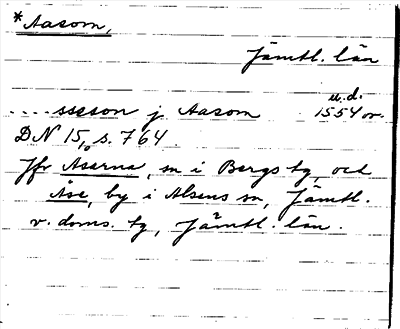 *Aasom,
Jämtl. län
....ssæson j Aasom u.d. 1554 or.
DN 15, s. 764.
Jfr Aserna, sn i Bergs tg, och
Åse, by i Alsens sn, Jämtl.
v. doms. tg, Jämtl. län.